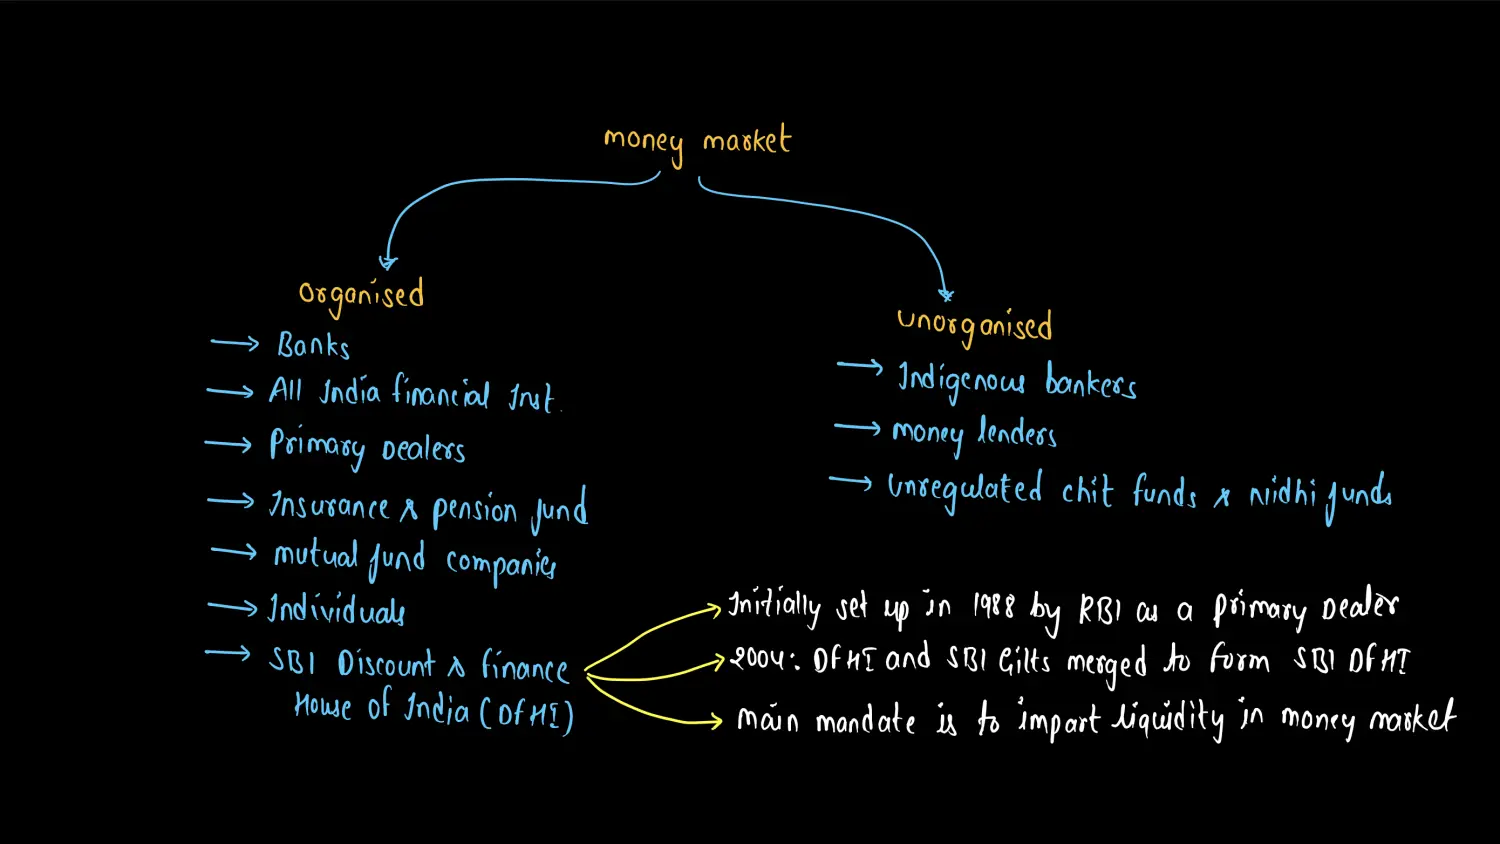 money market
organised
→ Banks
→ All India financial Inst.
→ Primary Dealers
→ Insurance & pension fund
→ mutual fund companies
→ Individuals
→ SBI Discount & finance
House of India (DFHI)
unorganised
→ Indigenous bankers
→ money lenders
→ unregulated chit funds & nidhi funds
→ Initially set up in 1988 by RBI as a Primary Dealer
→ 2004: DFHI and SBI Gilts merged to form SBI DFHI
→ main mandate is to impart liquidity in money market